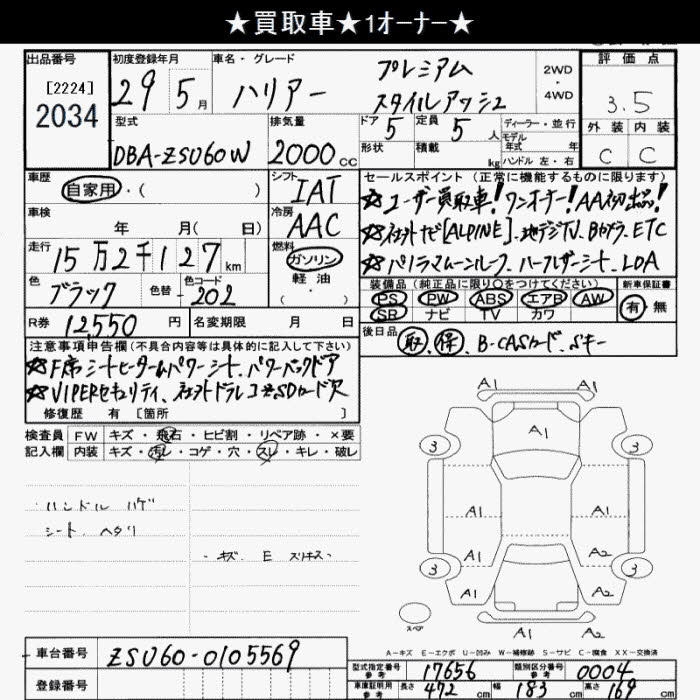 ★買取車★1オーナー★
出品番号
[2224]
2034
初度登録年月
29 5月
車名・グレード
ハリアー
プレミアム
スタイルアッシュ
2WD
・
4WD
評価点
3.5
外装 内装
C C
型式
DBA-ZSU60W
排気量
2000cc
ドア 5
定員 5人
形状
積載 kg
ディーラー・並行
モデル
年式 年
ハンドル 左・右
車歴
自家用・( )
シフト
IAT
セールスポイント(正常に機能するものに限ります)
☆ユーザー買取車!ワンオーナー!AA初出品!
☆社外ナビ[ALPINE]、地デジTV、Bカメラ、ETC
☆パノラマムーンルーフ、ハーフレザーシート、LDA
車検
年 月( 日)
冷房
AAC
走行
15万2千127km
燃料
ガソリン
軽油
・( )
色
ブラック
色替
カラーコード
202
装備品(純正品に限り○をつけてください)
PS PW ABS エアB AW
SR ナビ TV カワ
新車保証書
有・無
R券
12,550円
名変期限 月 日
後日品
取、得、B-CASカード、Sキー
注意事項申告欄(不具合内容等は具体的に記入して下さい)
☆F席シートヒーター&パワーシート、パワーバックドア
☆VIPERセキュリティ、社外ドラレコ※SDカード欠
修復歴 有 [箇所 ]
検査員
記入欄
FW キズ・飛石・ヒビ割・リペア跡・×要
内装 キズ・汚レ・コゲ・穴・スレ・キレ・破レ
ハンドル ハゲ
シート ヘタリ
・キズ E スリキズ・
A1 A1
A1
3 3
A1 A1
A1 A2
3 3
A1 A2
A1 A2
スペア
A-キズ E-エクボ U-凹み W-補修跡 S-サビ C-腐食 XX-交換済
車台番号
ZSU60-0105569
登録番号
型式指定番号
参考
17656
類別区分番号
参考
0004
車庫証明用
参考
長さ 472cm
幅 183cm
高さ 169cm